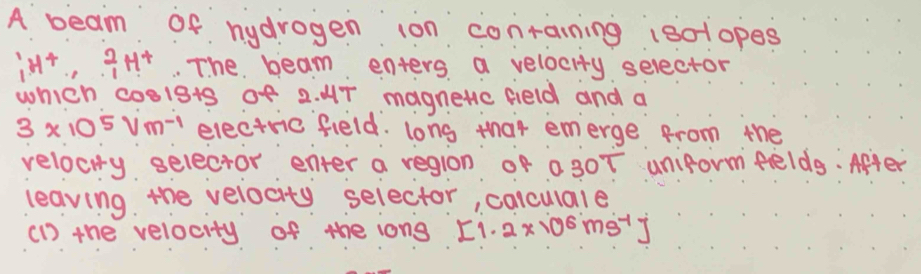 A beam of hydrogen ion contaning isotopes
¹₁H⁺, ²₁H⁺. The beam enters a velocity selector
which cosists of 2.4T magnetic field and a
3 x 10⁵ Vm⁻¹ electric field. long that emerge from the
velocity selector enter a region of a 30T uniform fields. After
leaving the velocity selector, calculate
(1) the velocity of the ions [1.2 x 10⁶ ms⁻¹]